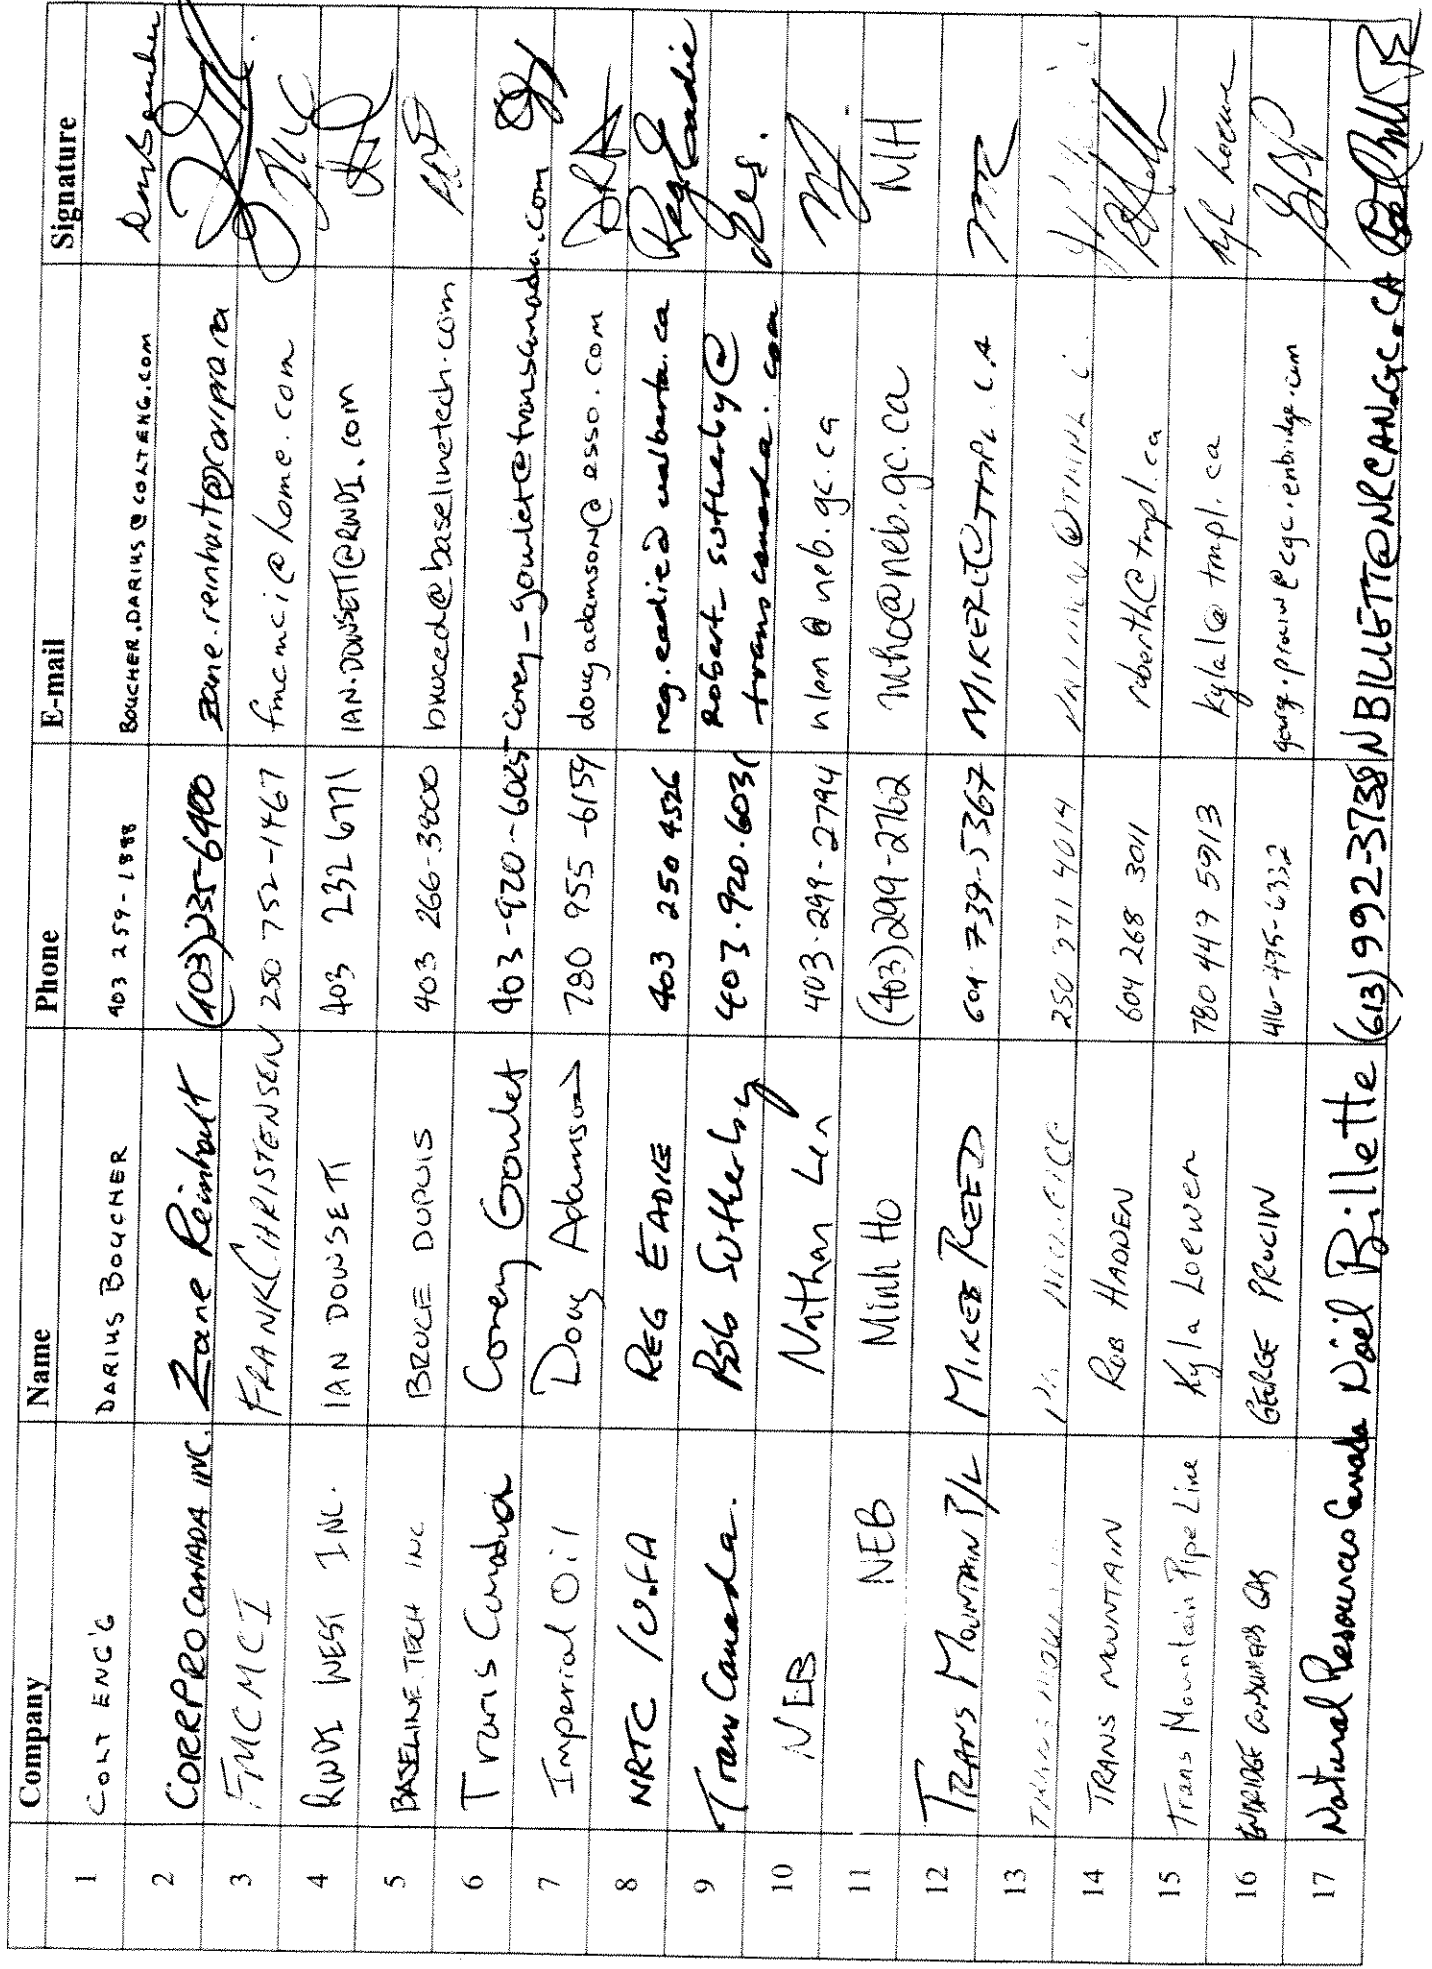 Company Name Phone E-mail Signature
1 COLT ENG'G DARIUS BOUCHER 403 259-1888 BOUCHER.DARIUS@COLTENG.COM
2 CORRPRO CANADA INC. Zane Reinhart (403)235-6400 zane.reinhart@corrpro.ca
3 FMCMCI FRANK CHRISTENSEN 250 752-1467 fmcmci@home.com
4 RWDI WEST INC. IAN DOWSETT 403 232 6771 IAN.DOWSETT@RWDI.com
5 BASELINE TECH INC BRUCE DUPUIS 403 266-3800 bruced@baselinetech.com
6 TransCanada Corey Goulet 403-920-6025 corey-goulet@transcanada.com
7 Imperial Oil Doug Adamson 780 955-6159 doug.adamson@esso.com
8 NRTC / U.FA REG EADIE 403 250 4526 reg.eadie@ualberta.ca Reg Eadie
9 TransCanada. Rob Sutherby 403.920.6031 Robert_sutherby@
transcanada.com
10 NEB Nathan Len 403-299-2794 nlen@neb.gc.ca
11 NEB Minh Ho (403)299-2762 mho@neb.gc.ca MH
12 TRANS MOUNTAIN P/L MIKE REED 604 739-5367 MIKER@TMPL.CA MR
13 250 371 4014
14 TRANS MOUNTAIN ROB HADDEN 604 268 3011 roberth@tmpl.ca
15 Trans Mountain Pipe Line Kyla Loewen 780 449 5913 kylal@tmpl.ca Kyla Loewen
16 ENBRIDGE CONSUMERS GAS GEORGE PROCIW 416-495-6332 george.prociw@cgc.enbridge.com
17 Natural Resources Canada Noël Billette (613)992-3738 NBILLETT@NRCAN.GC.CA